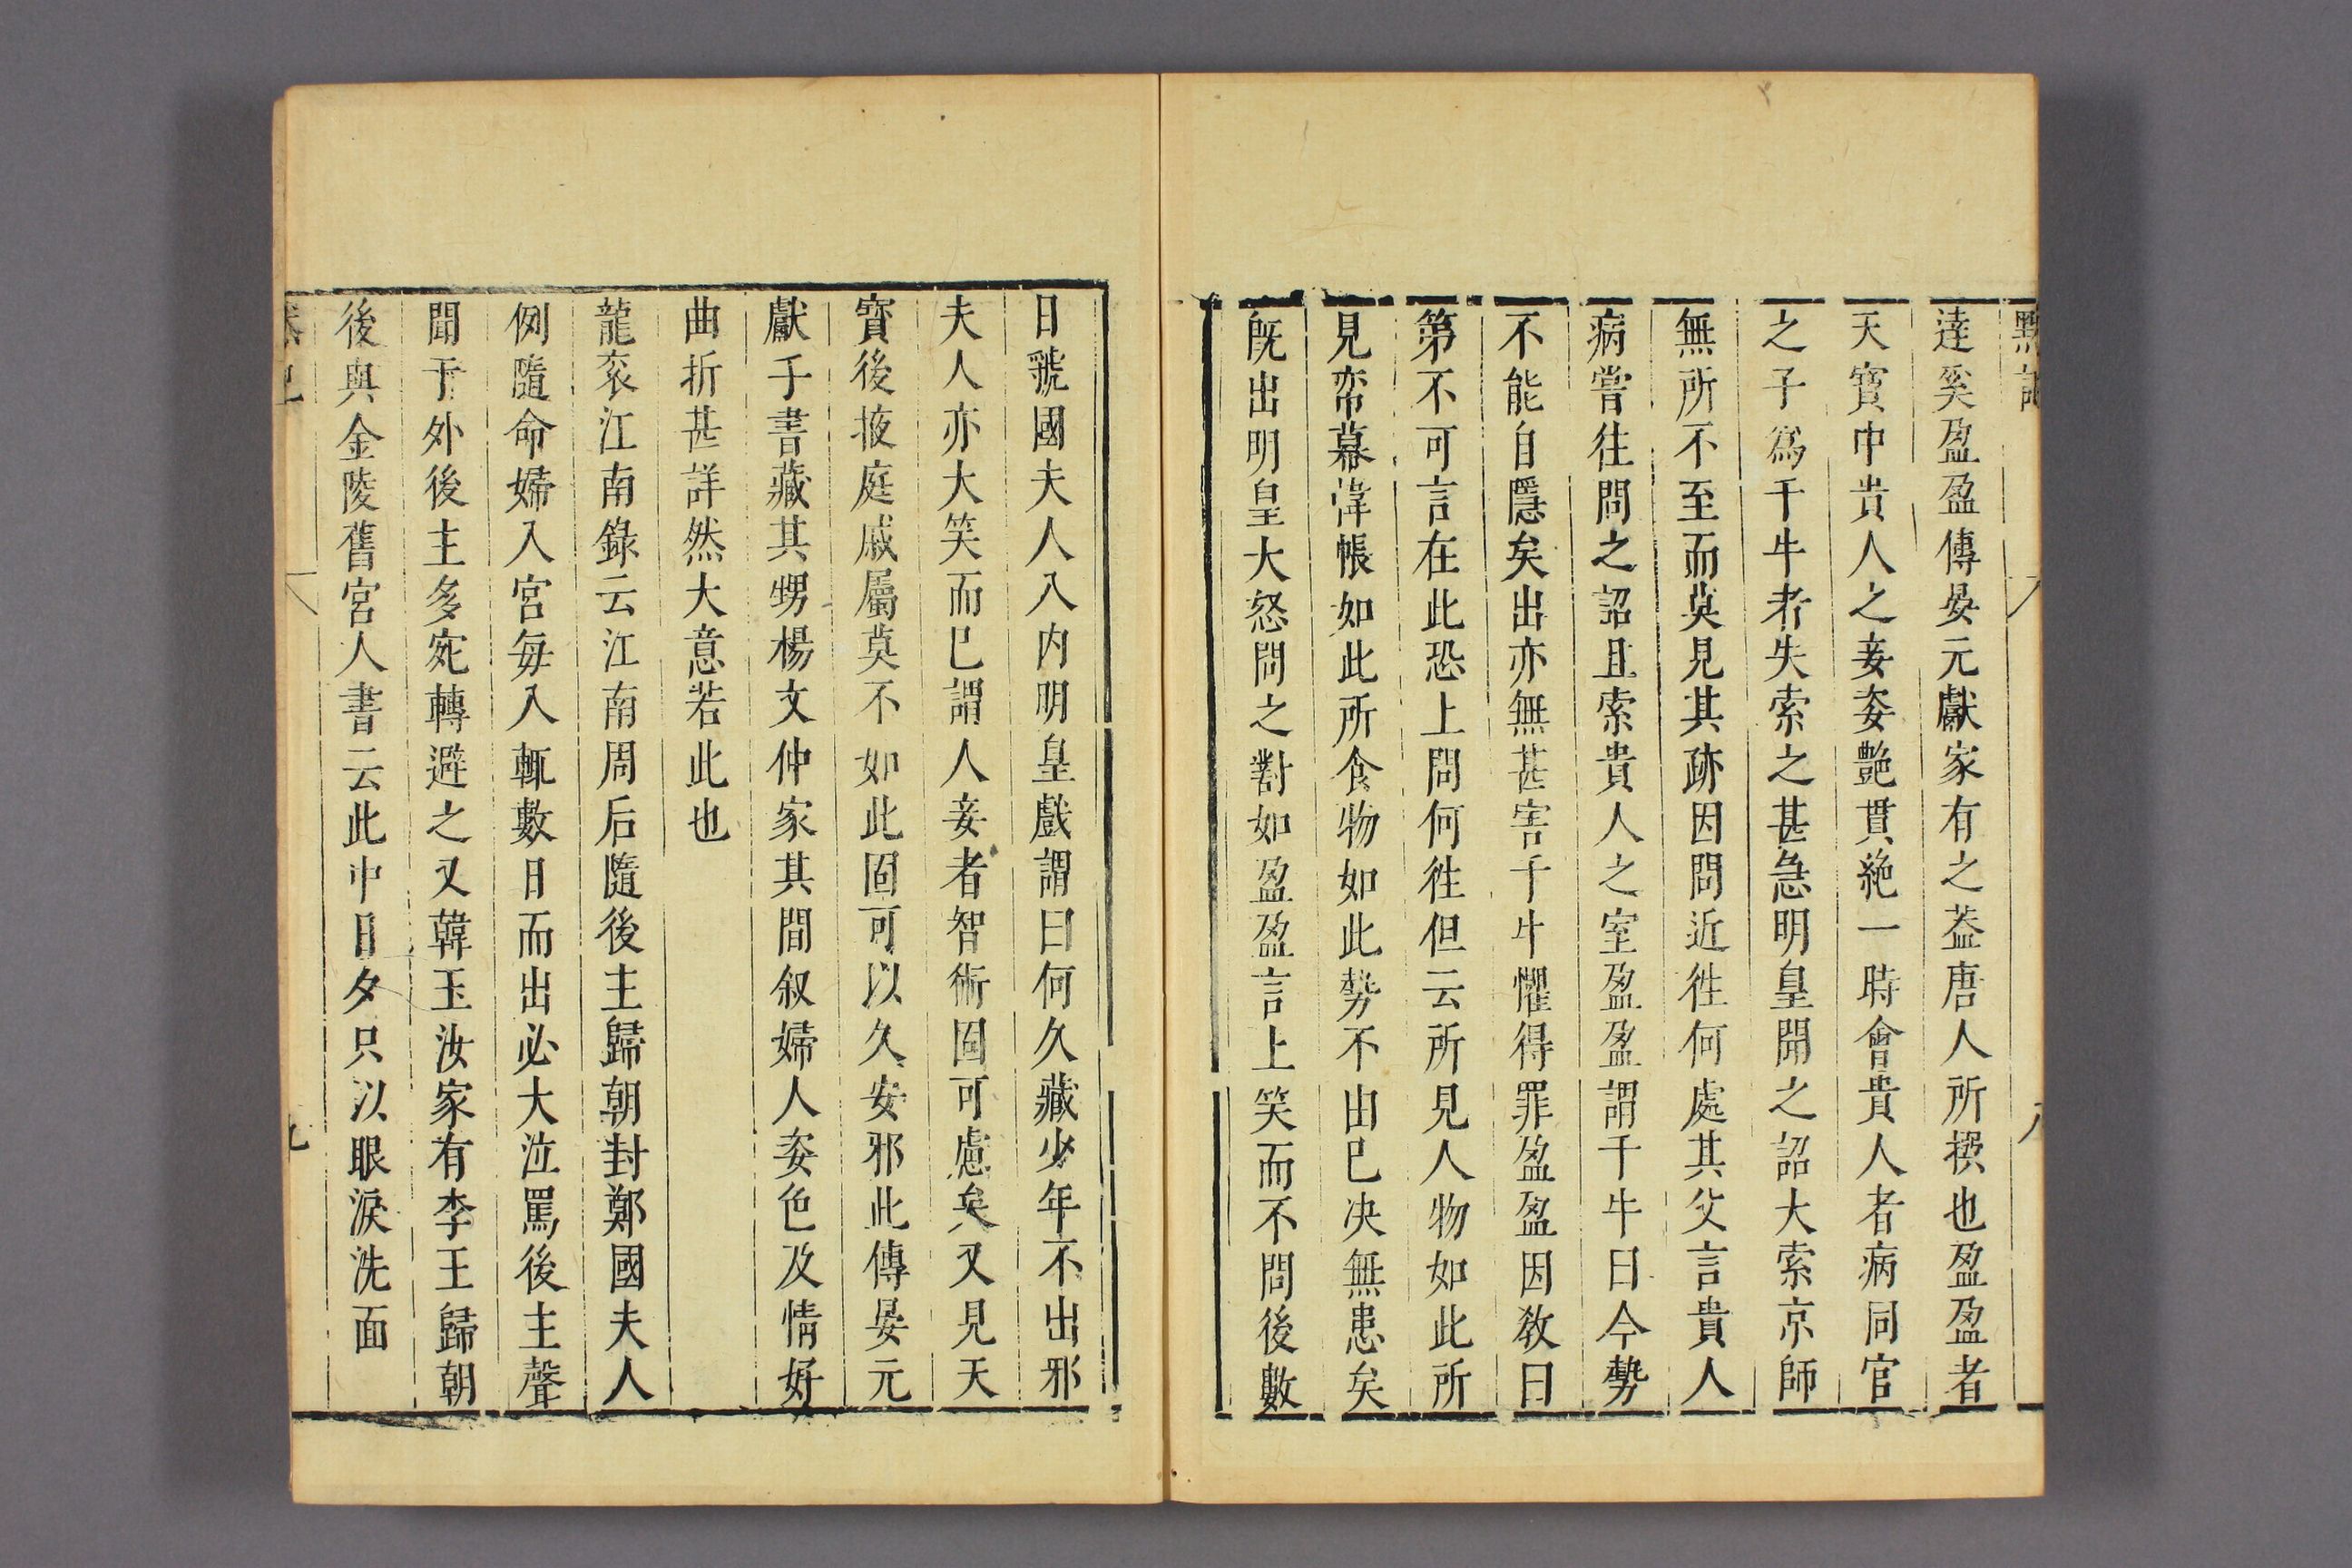 默記
八
達奚盈盈傳晏元獻家有之葢唐人所撰也盈盈者
天寳中貴人之妾姿艷貫絶一時會貴人者病同官
之子爲千牛者失索之甚急明皇聞之詔大索京師
無所不至而莫見其跡因問近徃何處其父言貴人
病嘗往問之詔且索貴人之室盈盈謂千牛曰今勢
不能自隱矣出亦無甚害千牛懼得罪盈盈因敎曰
第不可言在此恐上問何徃但云所見人物如此所
見帟幕幃帳如此所食物如此勢不由已决無患矣
旣出明皇大怒問之對如盈盈言上笑而不問後數
日虢國夫人入内明皇戲謂曰何久藏少年不出邪
夫人亦大笑而已謂人妾者智術固可慮矣又見天
寳後掖庭戚屬莫不如此固可以久安邪此傳晏元
獻手書藏其甥楊文仲家其間叙婦人姿色及情好
曲折甚詳然大意若此也
龍衮江南錄云江南周后隨後主歸朝封鄭國夫人
例隨命婦入宮每入輒數日而出必大泣罵後主聲
聞于外後主多宛轉避之又韓玉汝家有李王歸朝
後與金陵舊宮人書云此中日夕只以眼淚洗面
九